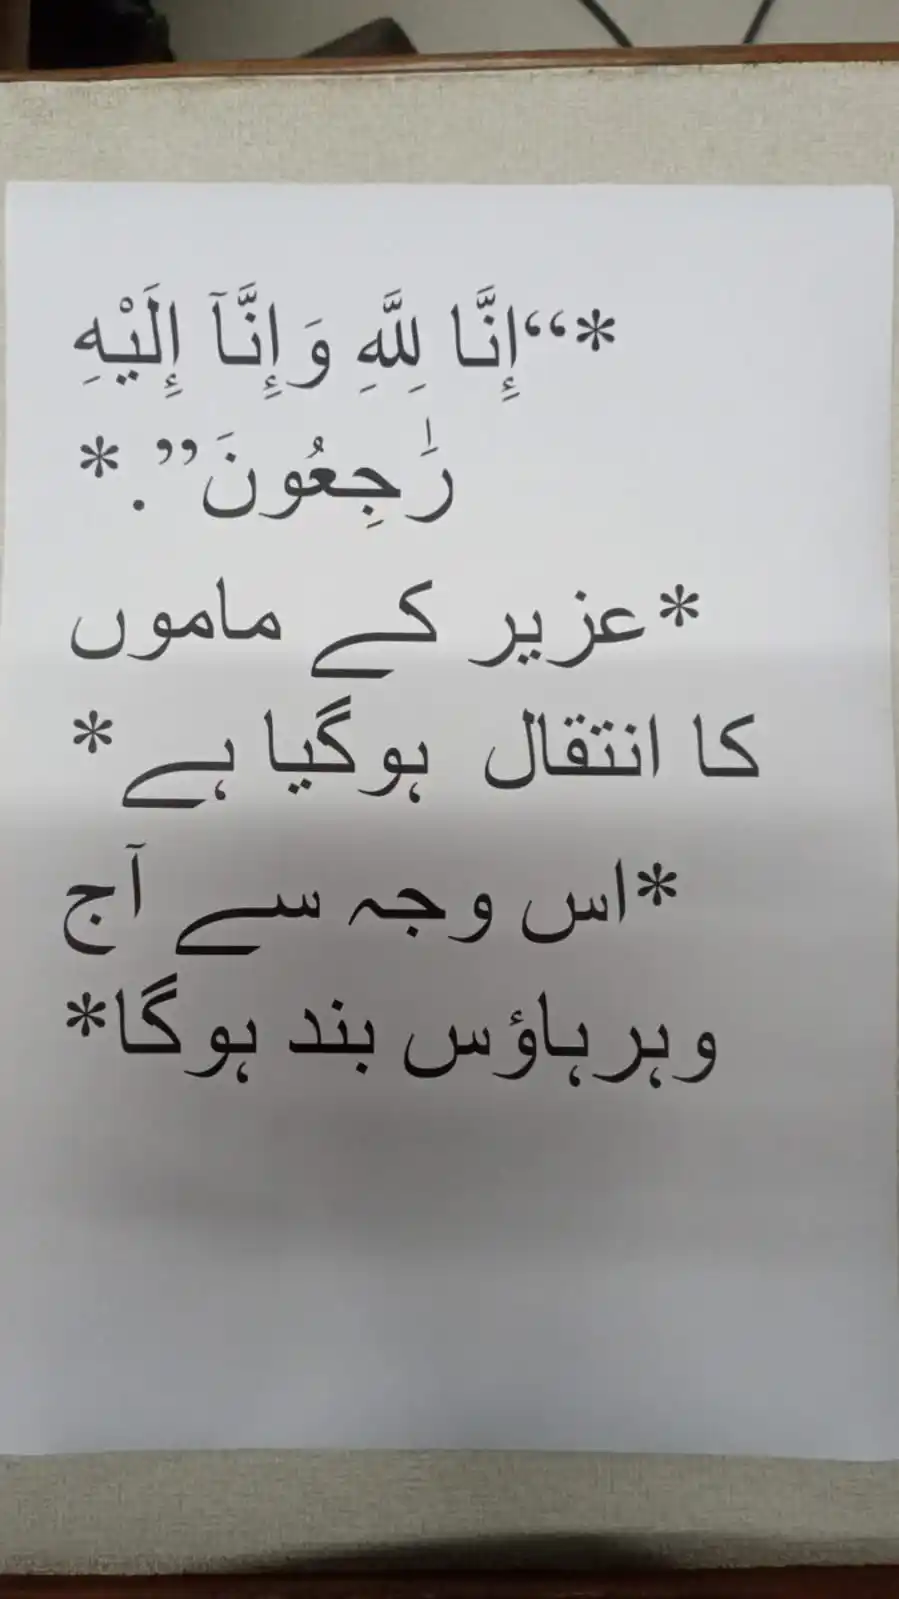 *“إِنَّا لِلَّهِ وَإِنَّآ إِلَيْهِ
رَٰجِعُونَ”.*
*عزیر کے ماموں
کا انتقال ہوگیا ہے*
*اس وجہ سے آج
وہرہاؤس بند ہوگا*